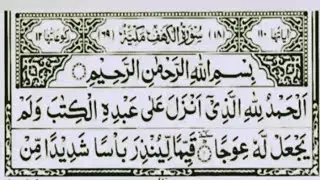 اٰیاتها ۱۱۰ (۱۸) سُوْرَةُ الْكَهْفِ مَكِّیَّةٌ (۶۹) رکوعاتها ۱۲
بِسْمِ اللّٰهِ الرَّحْمٰنِ الرَّحِیْمِ
اَلْحَمْدُ لِلّٰهِ الَّذِیْۤ اَنْزَلَ عَلٰى عَبْدِهِ الْكِتٰبَ وَلَمْ
یَجْعَلْ لَّهٗ عِوَجًا قَیِّمًا لِّیُنْذِرَ بَاْسًا شَدِیْدًا مِّنْ